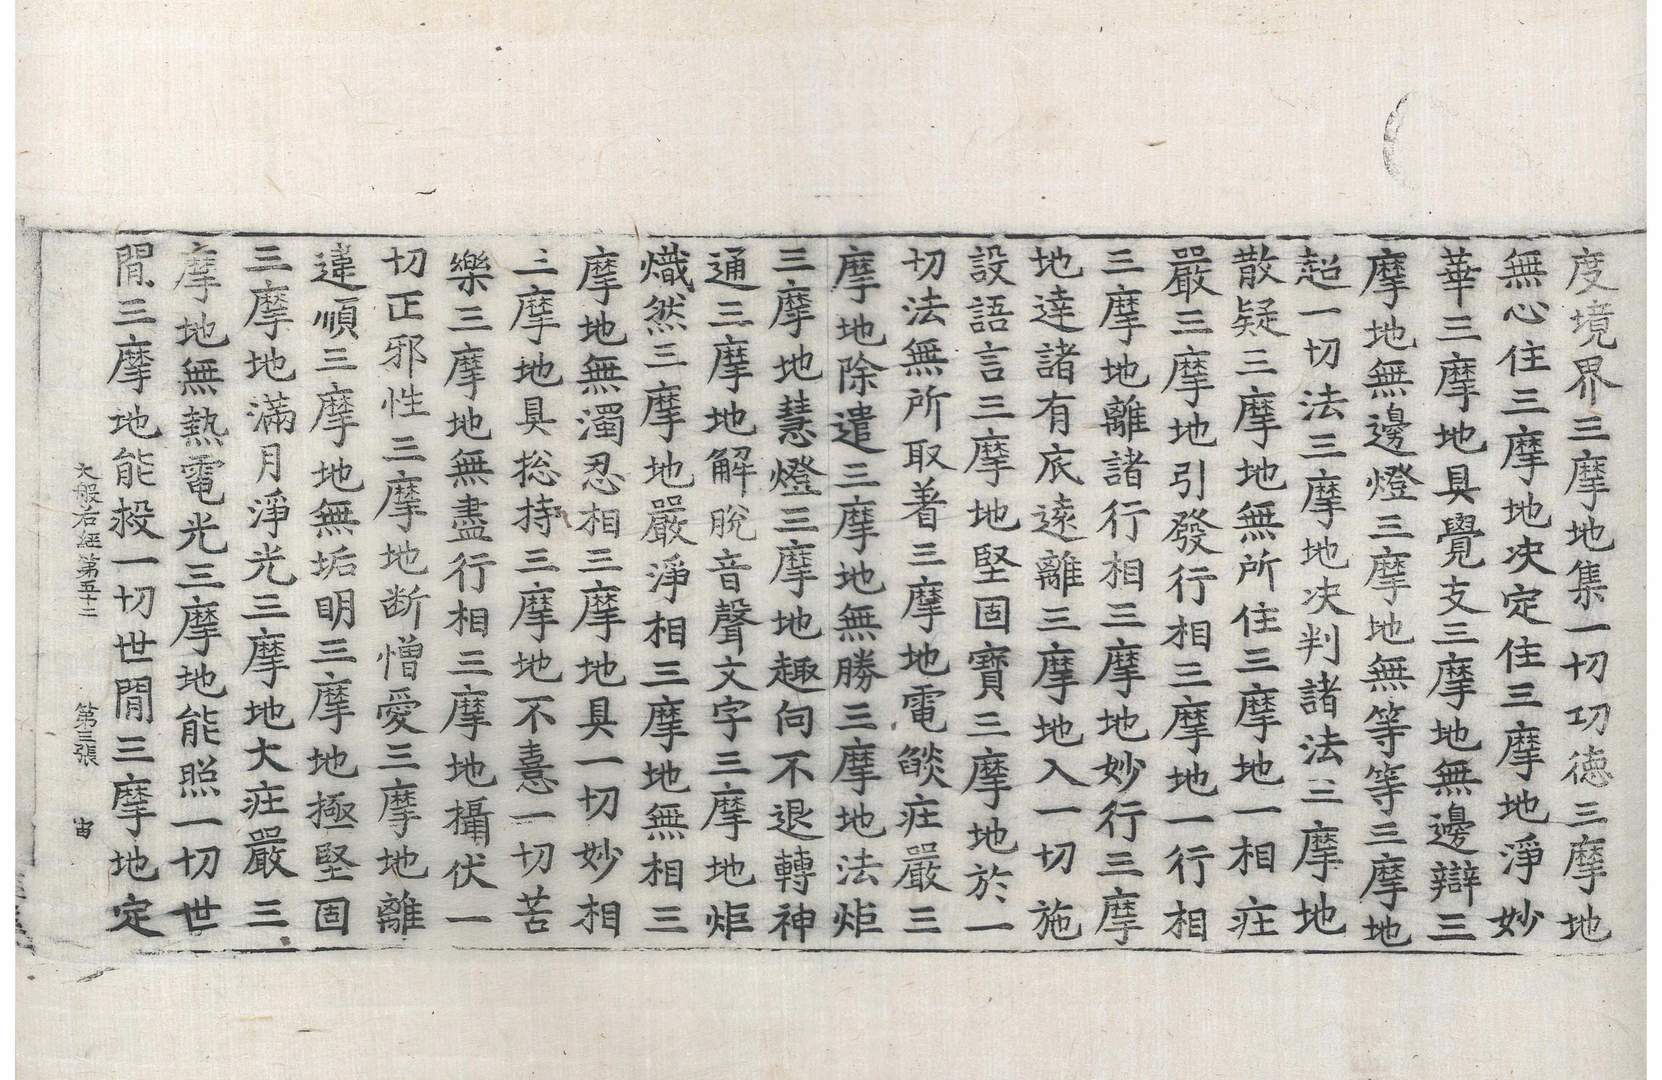 度境界三摩地集一切功德三摩地
無心住三摩地决定住三摩地淨妙
華三摩地具覺支三摩地無邊辯三
摩地無邊燈三摩地無等等三摩地
超一切法三摩地决判諸法三摩地
散疑三摩地無所住三摩地一相莊
嚴三摩地引發行相三摩地一行相
三摩地離諸行相三摩地妙行三摩
地達諸有底遠離三摩地入一切施
設語言三摩地堅固寶三摩地於一
切法無所取著三摩地電燄莊嚴三
摩地除遣三摩地無勝三摩地法炬
三摩地慧燈三摩地趣向不退轉神
通三摩地解脫音聲文字三摩地炬
熾然三摩地嚴淨相三摩地無相三
摩地無濁忍相三摩地具一切妙相
三摩地具総持三摩地不憙一切苦
樂三摩地無盡行相三摩地攝伏一
切正邪性三摩地断憎愛三摩地離
違順三摩地無垢明三摩地極堅固
三摩地滿月淨光三摩地大莊嚴三
摩地無熱電光三摩地能照一切世
閒三摩地能救一切世閒三摩地定
大般若經第五十二 第三張 宙